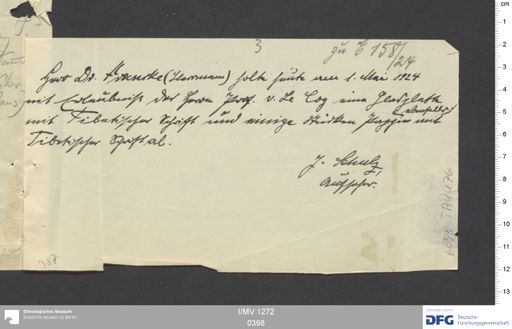 3
zu E 158/24
Herr Dr. Francke (Herrmann) holte heute am 1. Mai 1924
mit Erlaubniß des Herrn Prof. v. Le Coq eine Holzplatte
mit Tibetischer Schrift und einige Stücken Pappier mit
Tibetischer Schrift ab.
J. Schulz
Aufseher.
387
Ethnologisches Museum
Staatliche Museen zu Berlin
I/MV 1272
0398
DFG
Deutsche
Forschungsgemeinschaft
cm
1
2
3
4
5
6
7
8
9
10
11
12
13